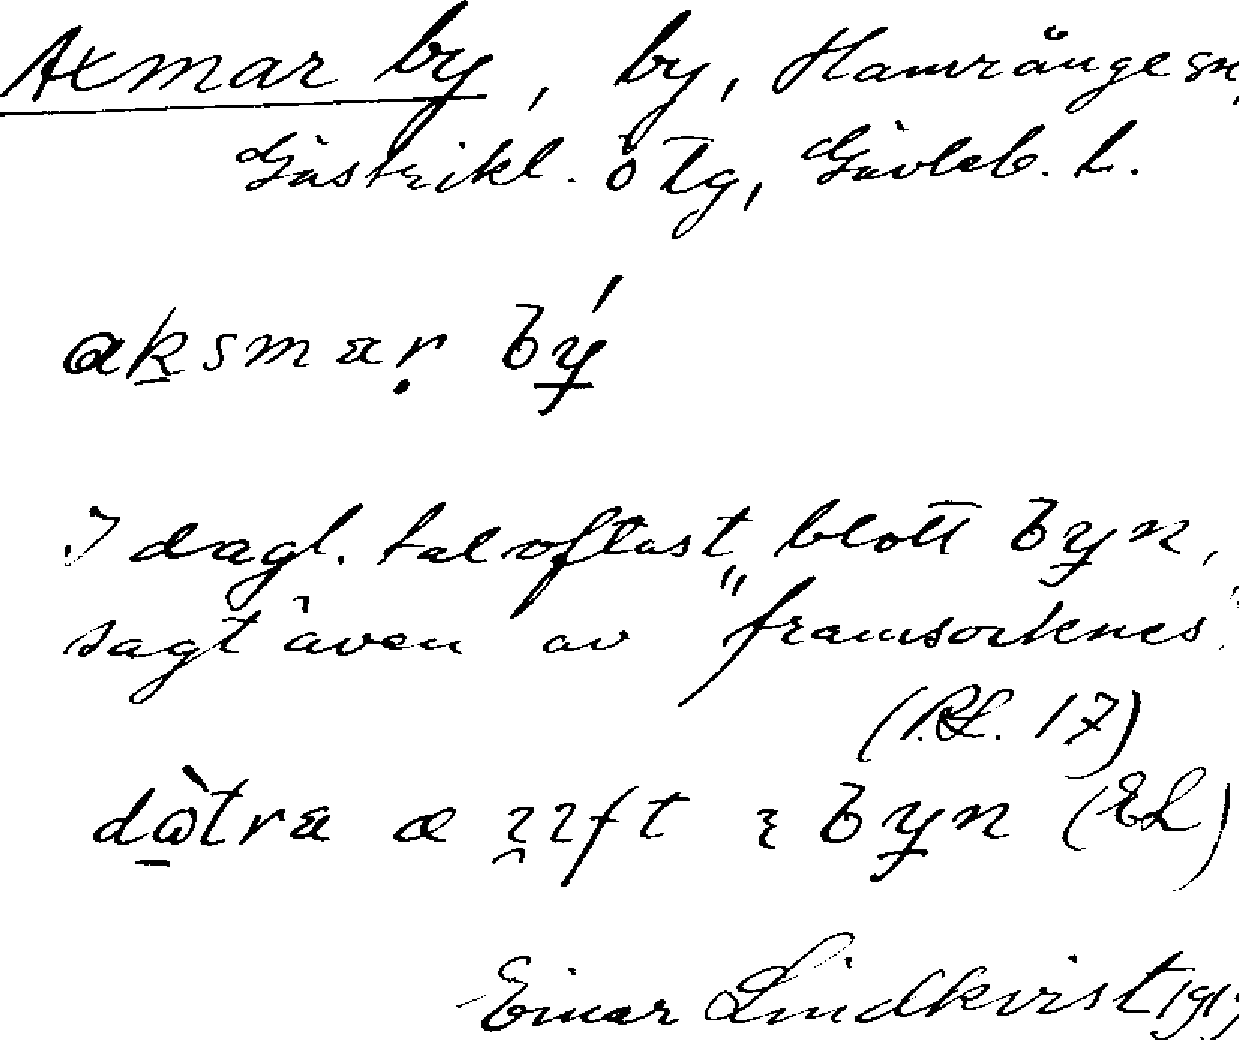 Axmar by, by, Hamrånge sn,
Gästrikl. ö tg, Gävleb. L.
aksmar bý
I dagl. tal oftast blott byn,
sagt även av "framsocknes".
(R.L. 17)
byn (EL)
Einar Lindkvist 1917